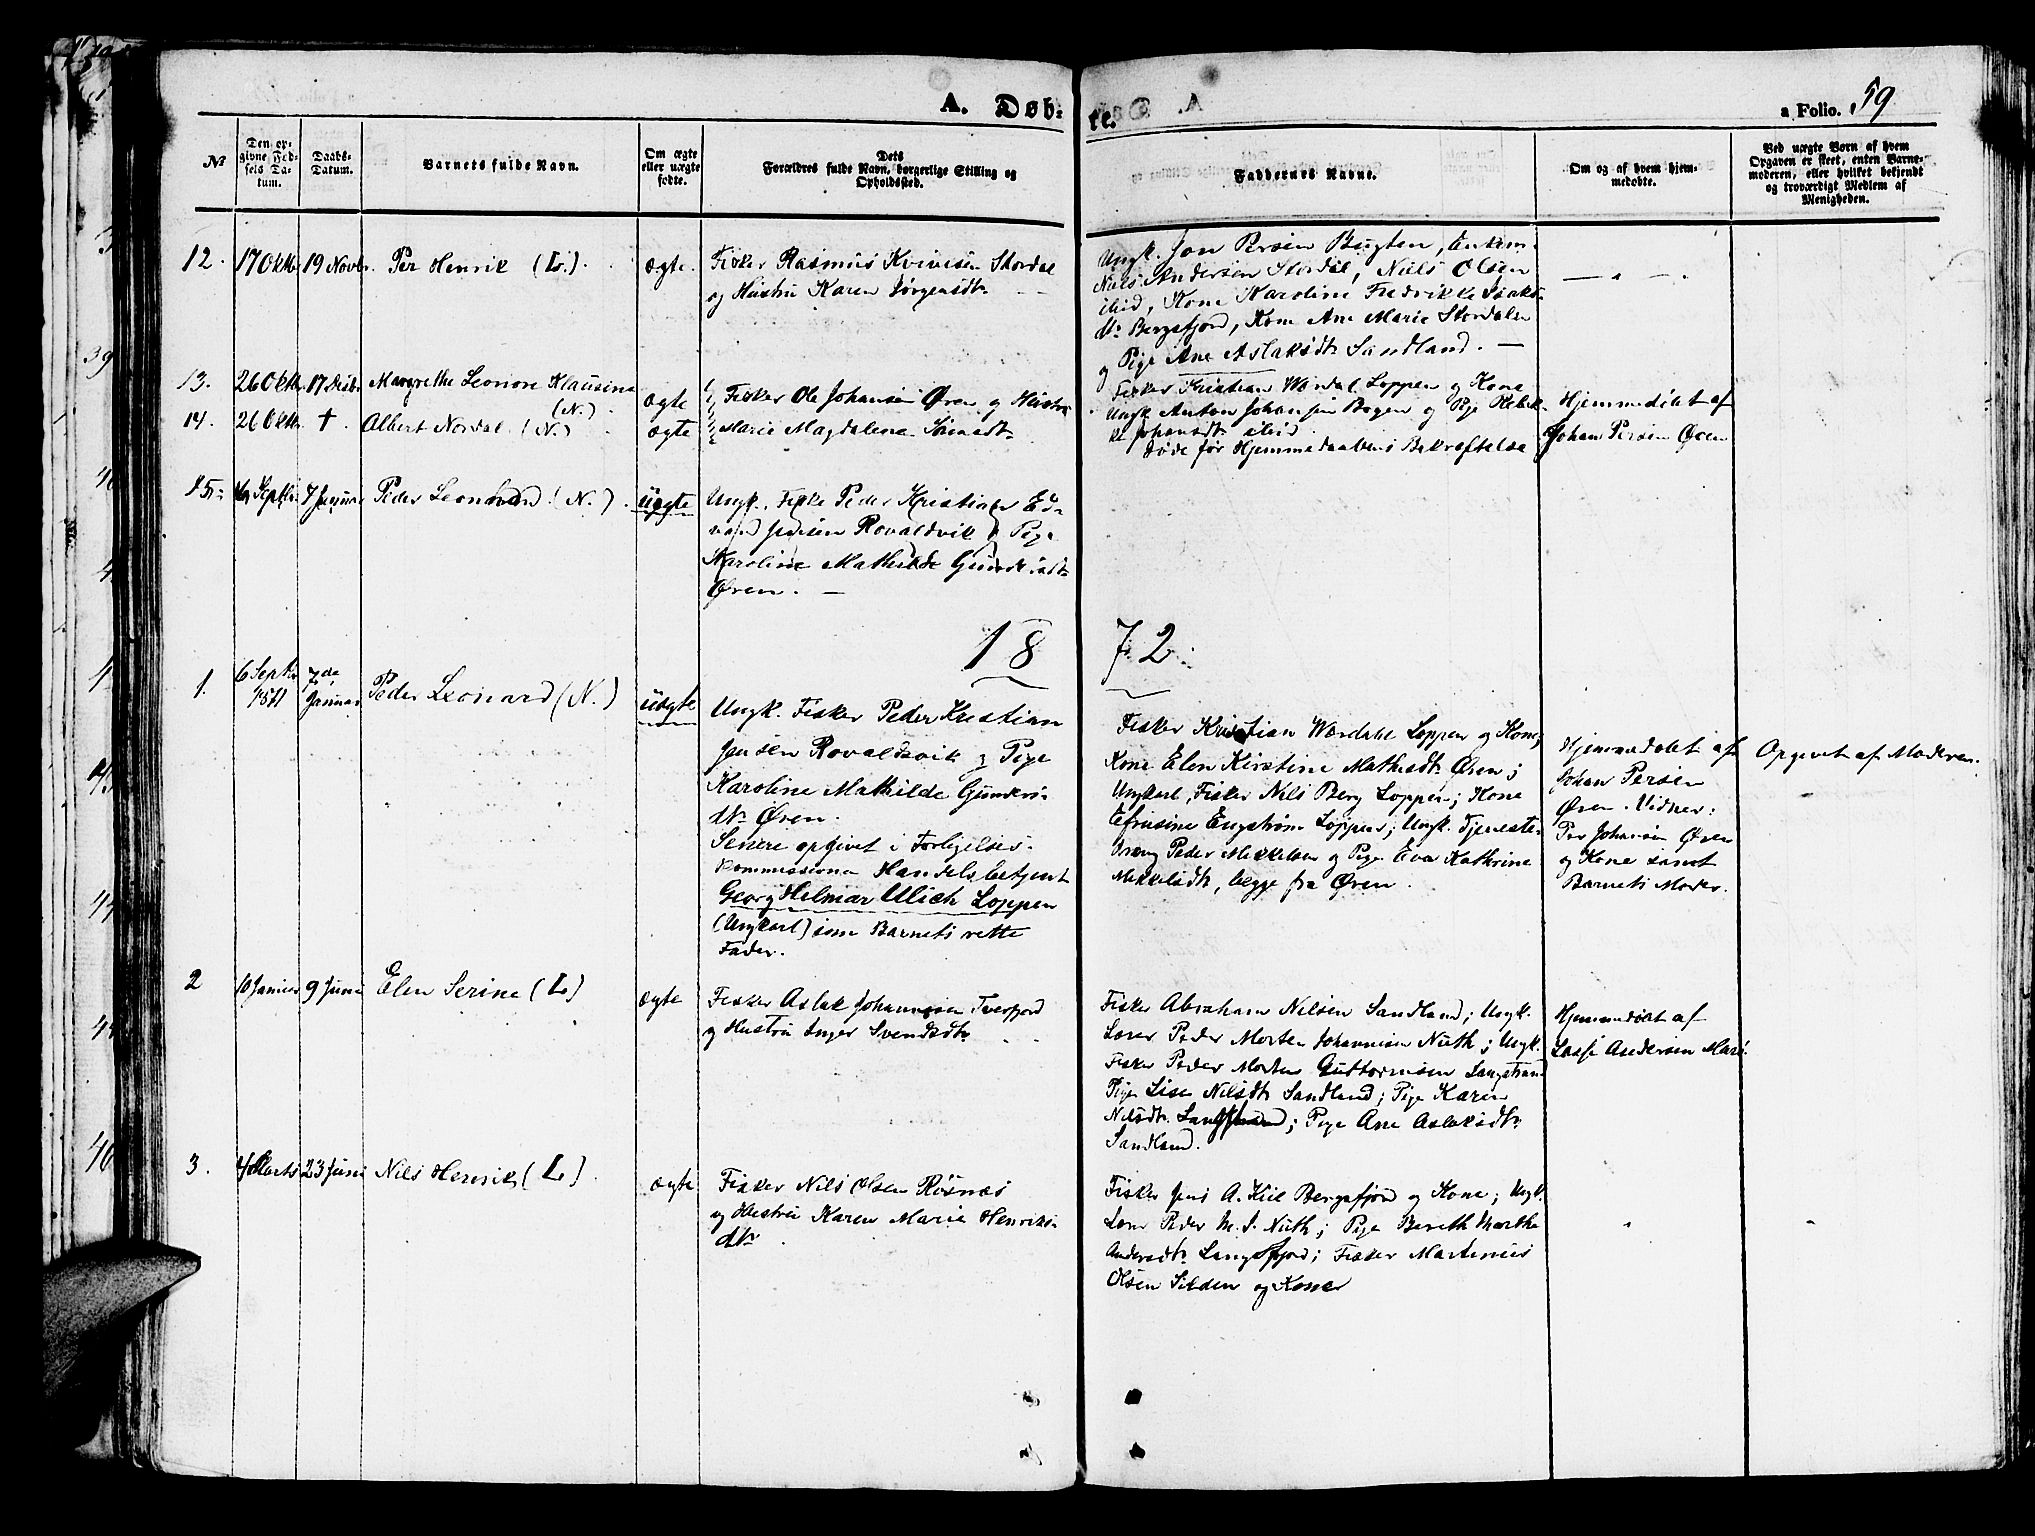 A. Døb-
te.
a Folio. 59
No
Den op-
givne Fød-
sels Da-
tum.
Daabs-
Datum.
Barnets fulde Navn.
Om ægte
eller uægte
fødte.
Dets
Forældres fulde Navn, borgerlige Stilling og
Opholdssted.
Faddernes Navne.
Om og af hvem hjem-
medøbte.
Ved uægte Børn af hvem
Opgaven er skeet, enten Barne-
moderen, eller hvilket bekjendt
og troværdigt Medlem af
Menigheden.
12. 17 Oktb. 19 Novbr. Per Henrik (L.) ægte. Fisker Rasmus Kvivesen Stordal
og Hustru Karen Jørgensdtr
Ungk. Jon Persen Bugten, Enkem.
Niels Andersen Stordal, Niels Olsen
ibid, Kone Karoline Fredrikke Isaks-
dtr Bergsfjord, Kone Ane Marie Stordalen
og Pige Ane Aslaksdtr Sandland. —
13. 26 Oktb. 17 Desbr. Margrethe Leonore Klausine
(N.) ægte Fisker Ole Johansen Øren og Hustru
Fisker Kristian Wardal Loppen og Kone
Ungk Anton Johansen Bogen og Pige Rebek-
ke Johansdtr ibid
Hjemmedøbt af
Johan Persen Øren
14. 26 Oktb. † Albert Nordal (N.) ægte Marie Magdalena
døde før Hjemmedaabens Bekræftelse
15. Septbr. 7 Januar Peder Leonhard (N.) uægte Ungk. Fisker Peder Kristian Ed-
vard Jensen Rovaldvik & Pige
Karoline Mathilde Gundersdtr
Øren. —
18 72.
1. 6 Septbr
1871 7de
Januar Peder Leonard (N.) uægte Ungk. Fisker Peder Kristian
Jensen Rovaldsvik & Pige
Karoline Mathilde Gunders-
dtr Øren.
Senere opgivet i Forligelses-
kommissionen Handelsbetjent
Georg Helmar Ulich Loppen
(Ungkarl) som Barnets rette
Fader.
Fisker Kristian Wardahl Loppen og Kone;
Kone Elen Kirstine Mathisdtr Øren;
Ungkarl, Fisker Nils Berg Loppen; Kone
Efrosine Engstrøm Loppen; Ungk. Tjeneste-
dreng Peder Mikkelsen og Pige Eva Kathrine
Mikkelsdtr, begge fra Øren.
Hjemmedøbt af
Johan Persen
Øren. Vidner:
Per Johansen Øren
og Kone samt
Barnets Moder.
Opgivet af Moderen.
2 10 Januar 9 Juni Elen Serine (L) ægte Fisker Aslak Johannesen Tverfjord
og Hustru Inger Svendsdtr
Fisker Abraham Nilsen Sandland; Ungk.
Lærer Peder Morten Johannesen Nuth; Ungk.
Fisker Peder Morten Guttormsen Langstrand
Pige Lisa Nilsdtr Sandland; Pige Karen
Nilsdtr. Langstrand; Pige Ane Aslaksdtr
Sandland.
Hjemmedøbt af
Lasse Andersen
3. 4 Marts 23 Juni Nils Henrik (L) ægte Fisker Nils Olsen Røsnæs
og Hustru Karen Marie Henriks-
dtr
Fisker Jens A. Kiil Bergsfjord og Kone; Ungk.
Lærer Peder M. J. Nuth; Pige Bereth Marthe
Andersdtr Langfjord; Fisker Martinus
Olsen Silden og Kone